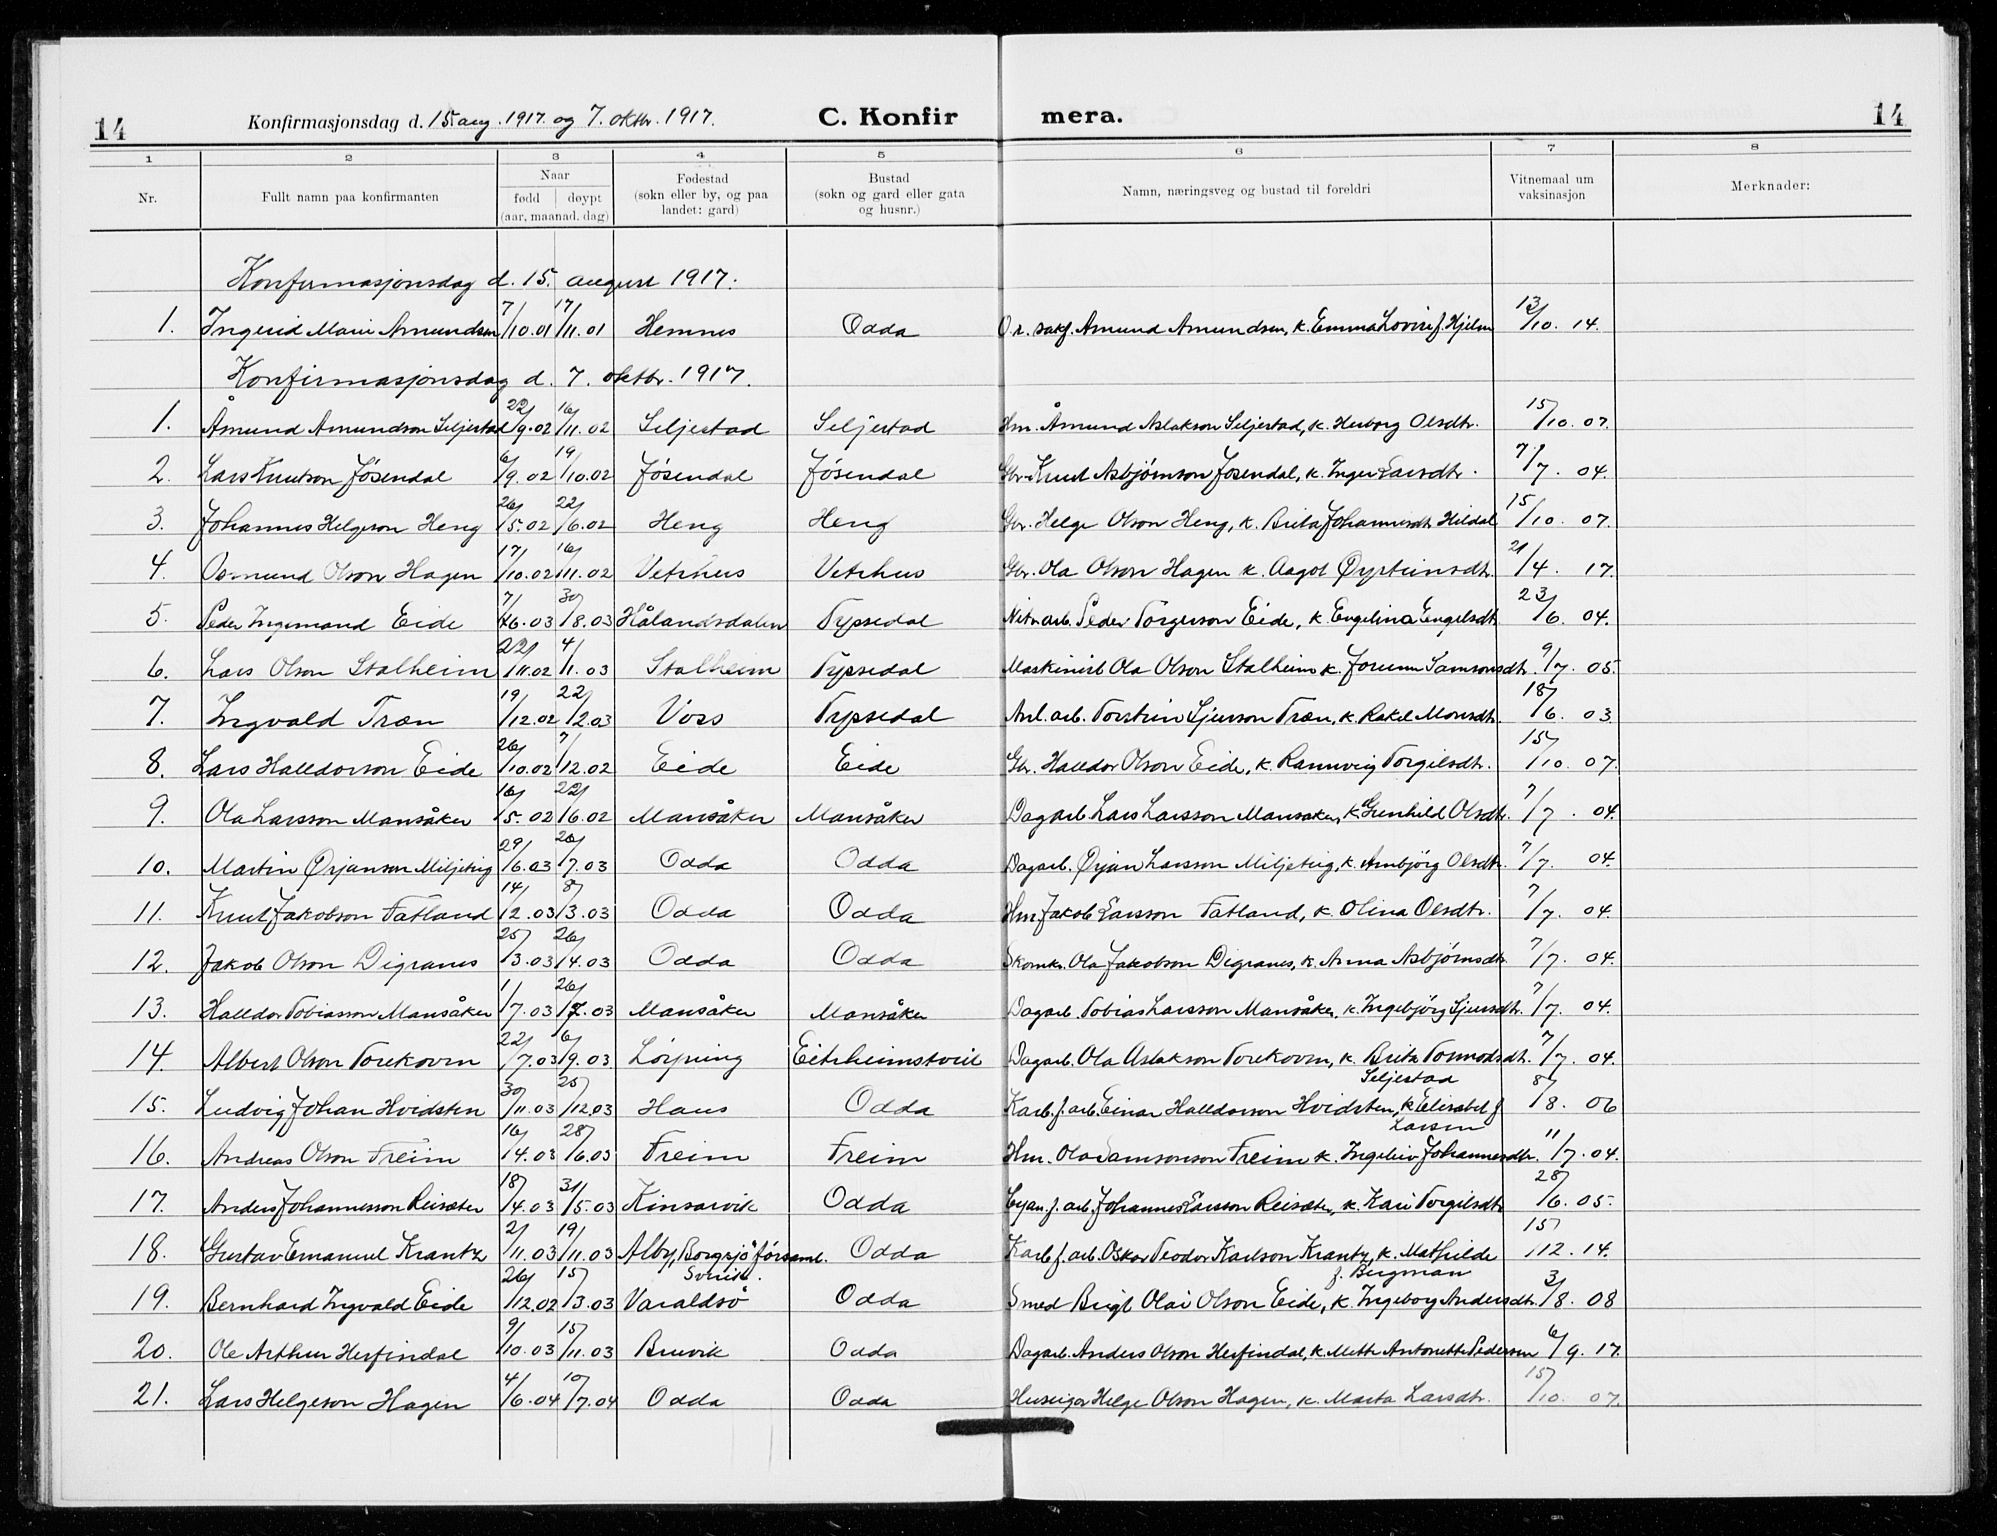 14 Konfirmasjonsdag d. 15. aug. 1917 og 7. oktbr. 1917. C. Konfir mera. 14
1 2 3 4 5 6 7 8
Nr. Fullt namn paa konfirmanten Naar fødd døypt (aar, maanad, dag) Fødestad (sokn eller by, og paa landet: gard) Bustad (sokn og gard eller gata og husnr.) Namn, næringsveg og bustad til foreldri Vitnemaal um vaksinasjon Merknader:
Konfirmasjonsdag d. 15. august 1917.
1. Ingrid Marie Amundsen 7/10.01 17/11.01 Hemnes Odda O.r. sakf. Amund Amundsen, k. Emma Lovise f. Hjelm 13/10. 14.
Konfirmasjonsdag d. 7. oktbr. 1917.
1. Åmund Åmundson Seljestad 22/9.02 16/11.02 Seljestad Seljestad Hm. Åmund Aslakson Seljestad, k. Herborg Olsdtr. 15/10. 07.
2. Lars Knutson Jösendal 6/9.02 19/10.02 Jösendal Jösendal Gbr. Knut Asbjörnson Jösendal, k. Inger Larsdtr. 7/7. 04.
3. Johannes Helgeson Heng 26/5.02 22/6.02 Heng Heng Gbr. Helge Olson Heng, k. Brita Johannesdtr. Hildal 15/10. 07.
4. Osmund Olson Hagen 17/10.02 16/11.02 Vetrhus Vetrhus Gbr. Ola Olson Hagen k. Aagot Øysteinsdtr. 21/4. 17.
5. Peder Ingemand Eide 7/6.03 30/8.03 Hålandsdalen Tyssedal Nitr. arb. Peder Torgerson Eide, k. Engelina Engelsdtr. 23/6. 04.
6. Lars Olson Stalheim 22/11.02 4/1.03 Stalheim Tyssedal Maskinist Ola Olson Stalheim k. Jorunn Samsonsdtr. 9/7. 05.
7. Ingvald Træn 19/12.02 22/2.03 Voss Tyssedal Anl. arb. Torstein Sjurson Træn, k. Rakel Monsdtr. 18/6. 03.
8. Lars Halldorson Eide 26/10.02 7/12.02 Eide Eide Gbr. Halldor Olson Eide, k. Rannveig Torgilsdtr. 15/10. 07.
9. Ola Larsson Mansåker 16/5.02 22/6.02 Mansåker Mansåker Dagarb. Lars Larsson Mansåker, k. Gunhild Olsdtr. 7/7. 04.
10. Martin Ørjanson Miljeteig 29/6.03 26/7.03 Odda Odda Dagarb. Ørjan Larsson Miljeteig, k. Arnbjörg Olsdtr. 7/7. 04.
11. Knut Jakobson Tatland 14/2.03 8/3.03 Odda Odda Hm. Jakob Larsson Tatland, k. Olina Olsdtr. 7/7. 04.
12. Jakob Olson Digranes 25/3.03 26/4.03 Odda Odda Skomk. Ola Jakobson Digranes, k. Anna Asbjörnsdtr. 7/7. 04.
13. Halldor Tobiasson Mansåker 1/7.03 26/7.03 Mansåker Mansåker Dagarb. Tobias Larsson Mansåker, k. Ingebjörg Sjursdtr. 7/7. 04.
14. Albert Olson Torekovn 22/7.03 6/9.03 Löyning Eitrheimstveit Dagarb. Ola Aslakson Torekovn, k. Brita Tormodsdtr. 7/7. 04.
Seljestad
15. Ludvig Johan Hvidsten 30/11.03 25/12.03 Haus Odda Karb. f. arb. Einar Halldorson Hvidsten, k. Elisabet f. 8/8. 06
Larsen
16. Andreas Olson Freim 16/4.03 28/6.03 Freim Freim Hm. Ola Samsonson Freim k. Ingeleiv Johannesdtr. 11/7. 04.
17. Anders Johannesson Reisæter 18/4.03 31/5.03 Kinsarvik Odda Cyan. f. arb. Johannes Larsson Reisæter, k. Kari Torgilsdtr. 28/6. 05.
18. Gustav Emanuel Krantz 2/11.03 19/11.03 Alby, Borgsjö församl. Odda Karb. f. arb. Oskar Teodor Karlson Krantz, k. Mathilde 15/12. 14.
Sverike. f. Bergman
19. Bernhard Ingvald Eide 26/12.02 15/3.03 Varaldsö Odda Smed Brigt Olai Olson Eide, k. Ingeborg Andersdtr. 3/8. 08
20. Ole Arthur Herfindal 9/10.03 15/11.03 Bruvik Odda Dagarb. Anders Olson Herfindal, k. Mette Antonette Pedersen 6/9. 17.
21. Lars Helgeson Hagen 4/6.04 10/7.04 Odda Odda Huseigar Helge Olson Hagen, k. Marta Larsdtr. 15/10. 07.